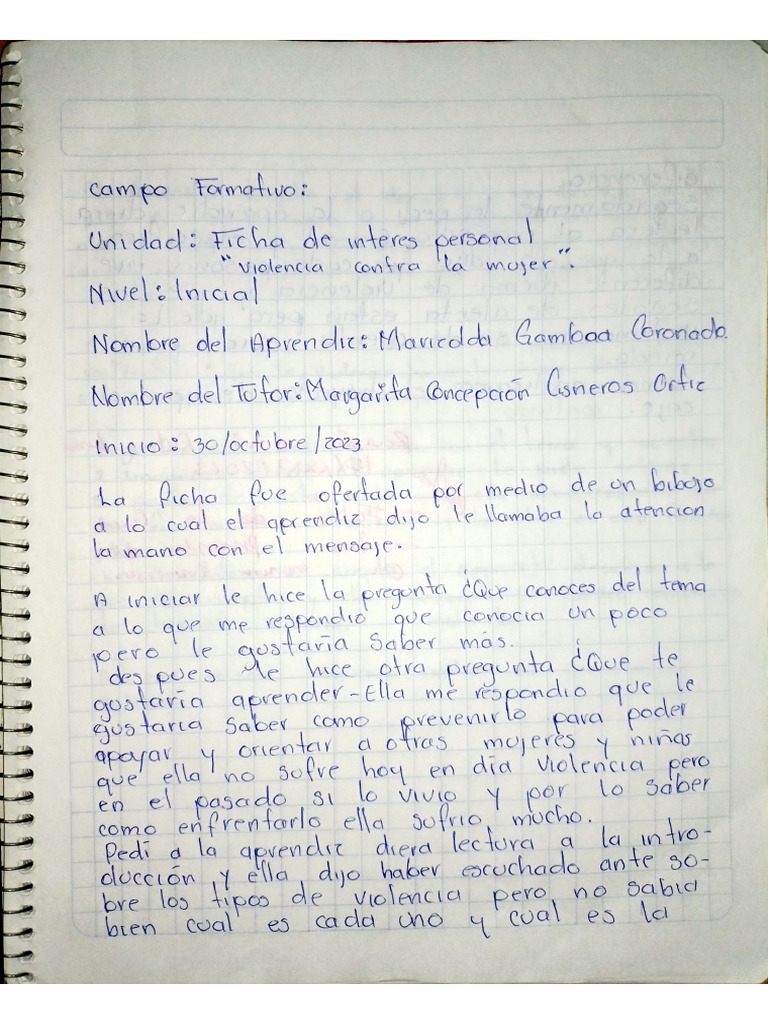 Campo Formativo:
Unidad: Ficha de interes personal
"violencia contra la mujer".
Nivel: Inicial
Nombre del Aprendiz: Maricelda Gamboa Coronado.
Nombre del Tutor: Margarita Concepción Cisneros Ortiz
Inicio: 30/octubre/2023
La ficha fue ofertada por medio de un bibujo
a lo cual el aprendiz dijo le llamaba la atencion
la mano con el mensaje.
A iniciar le hice la pregunta ¿Que conoces del tema
a lo que me respondio que conocia un poco
pero le gustaría saber más.
des pues le hice otra pregunta ¿Que te
gustaría aprender-Ella me respondio que le
gustaria saber como prevenirlo para poder
apoyar y orientar a otras mujeres y niñas
que ella no sufre hoy en día violencia pero
en el pasado si lo vivio y por lo saber
como enfrentarlo ella sufrio mucho.
Pedi a la aprendiz diera lectura a la intro-
ducción y ella dijo haber escuchado ante so-
bre los tipos de violencia pero no sabia
bien cual es cada uno y cual es la